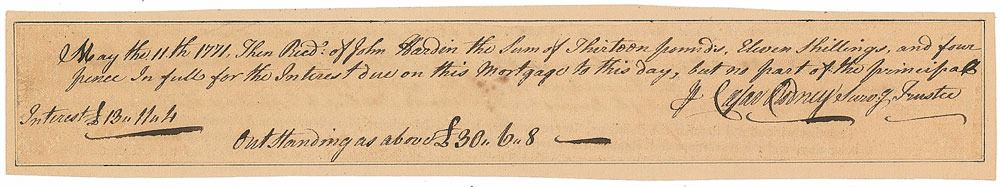 May the 11th 1771. Then Recd. of John Hardin the Sum of Thirteen pounds, Eleven Shillings, and four
pence In full for the Interest due on this Mortgage to this day, but no part of the principal
Caesar Rodney Survg. Trustee
Interest £13" 11" 4
Out standing as above £30" 6" 8